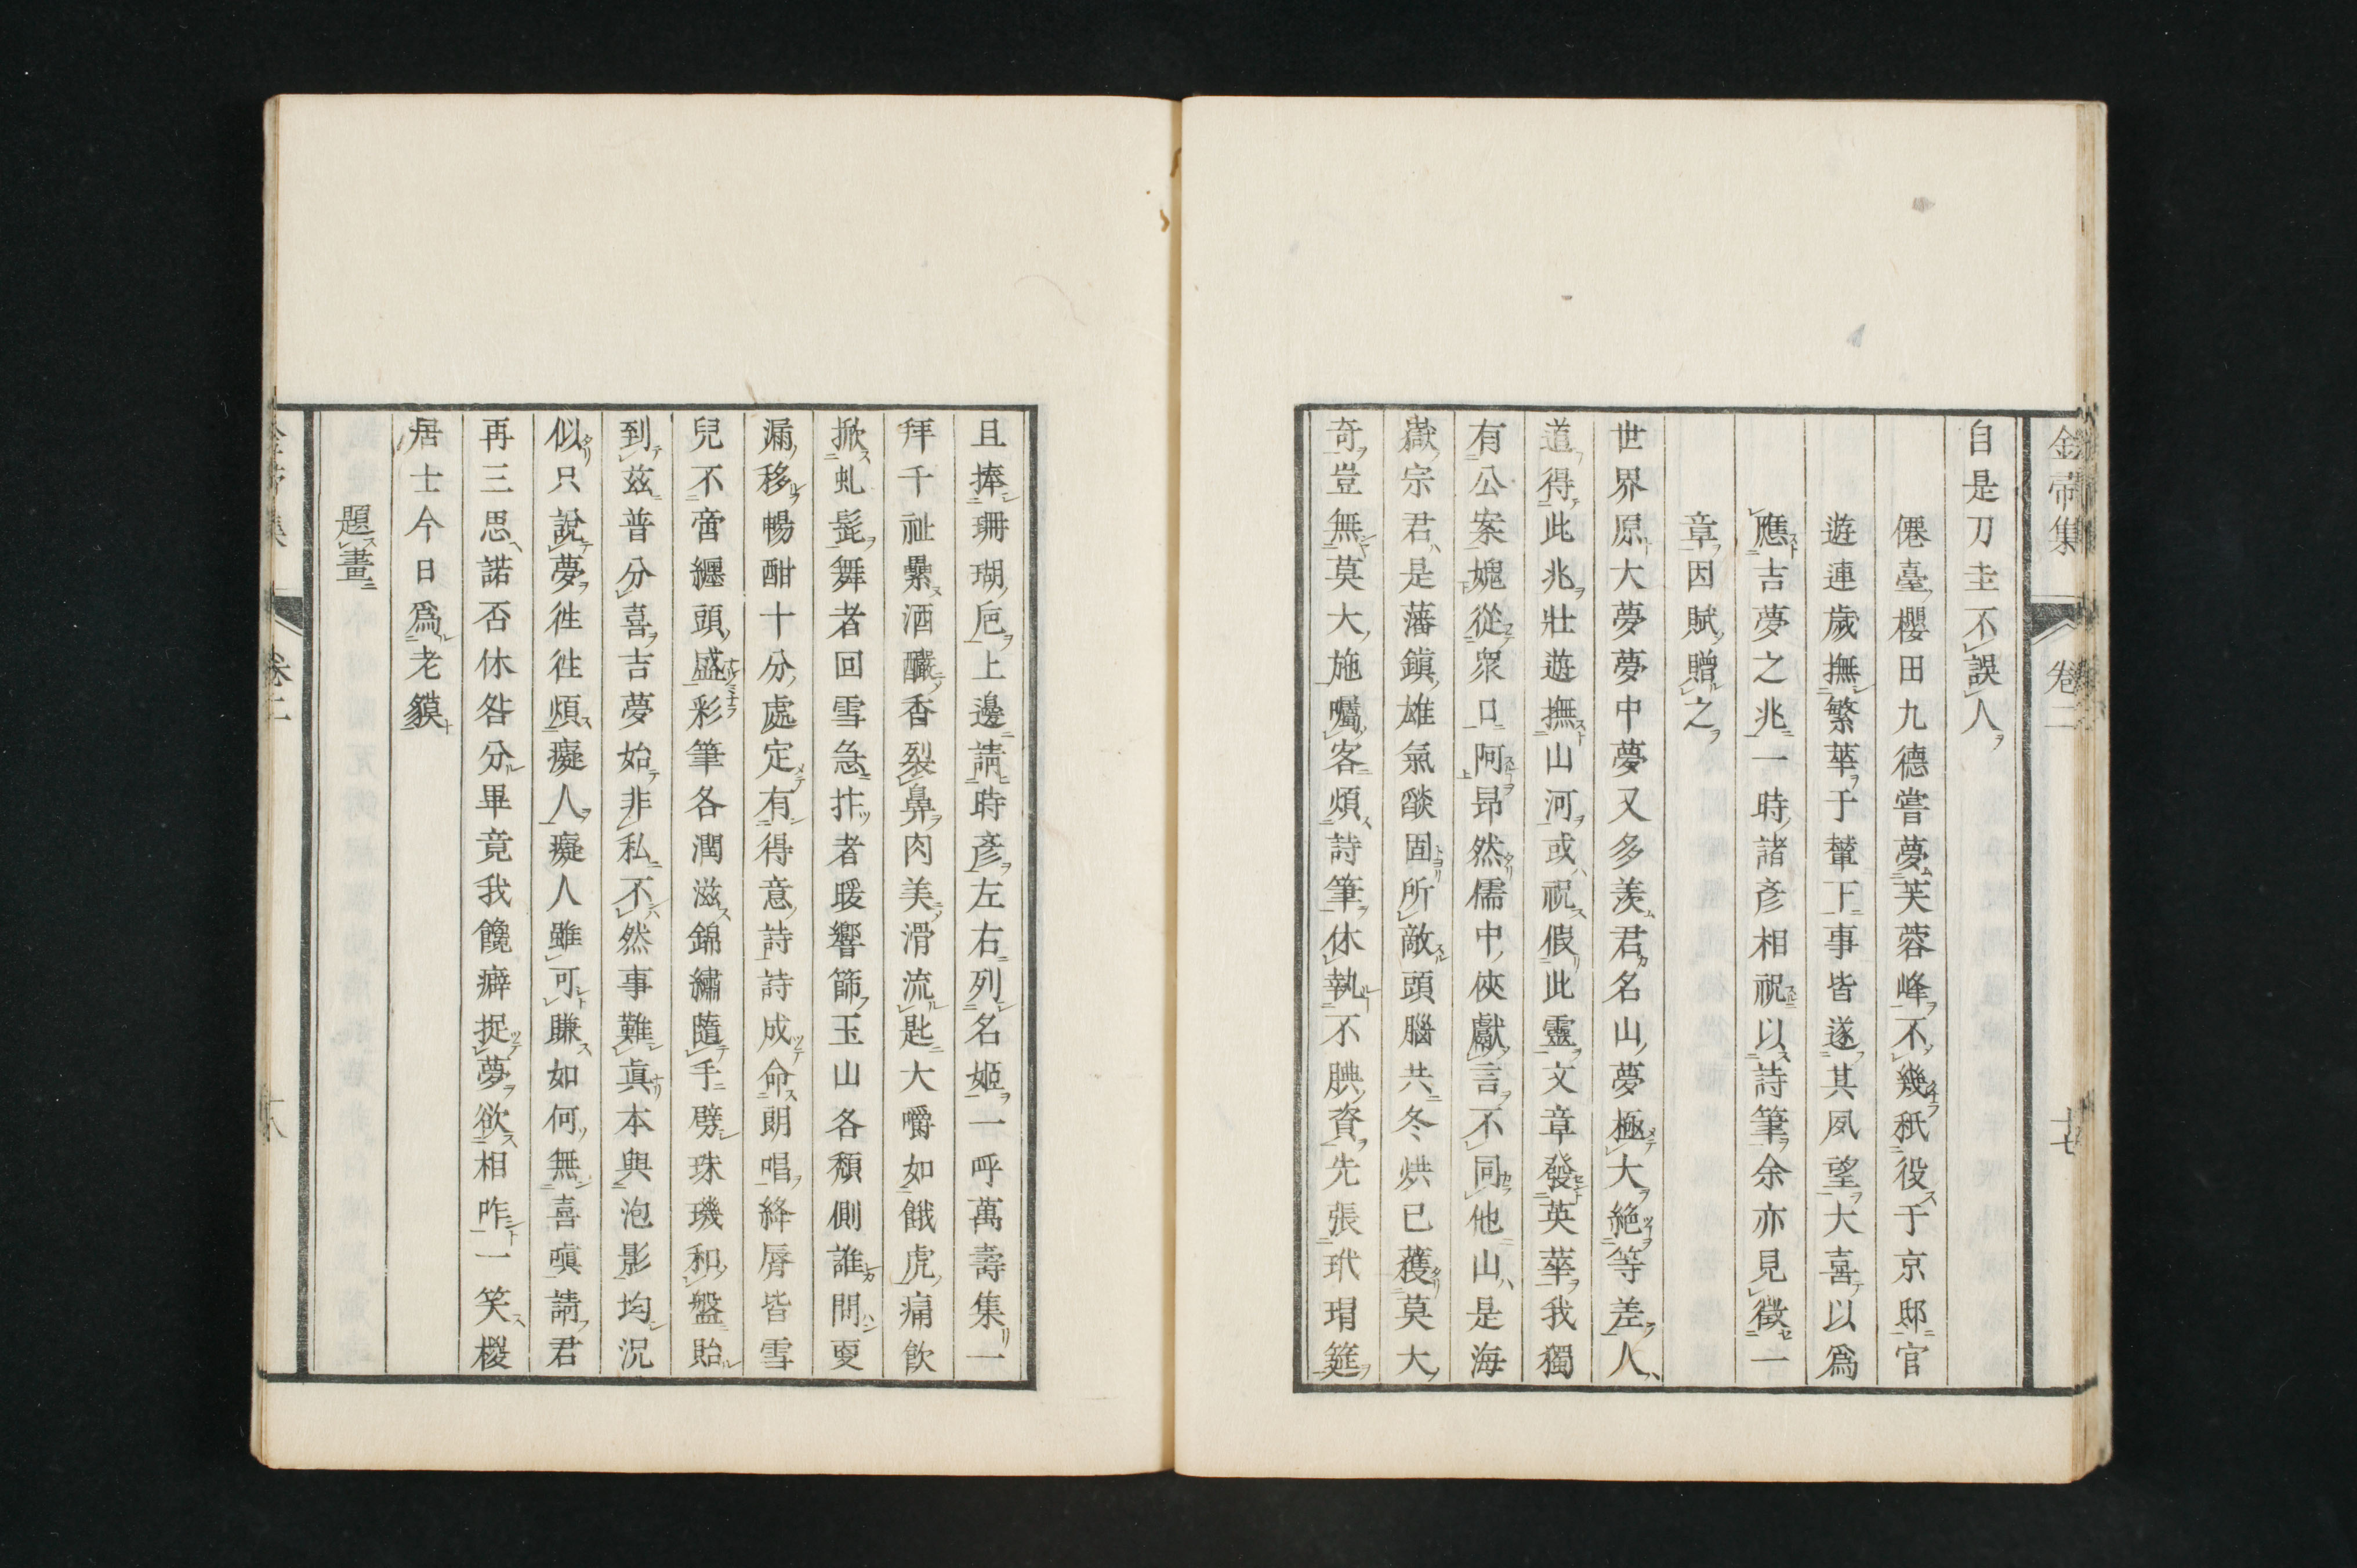 金帚集 卷二 十七
自是刀圭不誤人
僊臺櫻田九德嘗夢芙蓉峰不幾祇役于京邸官
遊連歲撫繁華于輦下事皆遂其夙望大喜以爲
應吉夢之兆一時諸彥相祝以詩筆余亦見徵一
章因賦贈之
世界原大夢夢中夢又多羨君名山夢極大絕等差人
道得此兆壯遊撫山河或祝假此靈文章發英華我獨
有公案媿從眾口阿昂然儒中俠獻言不同他山是海
嶽宗君是藩鎮雄氣燄固所敵頭腦共冬烘已穫莫大
奇豈無莫大施囑客煩詩筆休執不腆資先張玳瑁筵
且捧珊瑚巵上邊請時彥左右列名姬一呼萬壽集一
拜千祉纍酒釀香裂鼻肉美滑流匙大嚼如餓虎痛飲
掀虬髭舞者回雪急拃者暖響節玉山各頹側誰問更
漏移暢酣十分處定有得意詩詩成命朗唱絳脣皆雪
兒不啻纏頭盛彩筆各潤滋錦繡隨手劈珠璣和盤貽
到茲普分喜吉夢始非私不然事難眞本與泡影均況
似只說夢徃徃煩癡人癡人雖可賺如何無喜嗔請君
再三思諾否休咎分畢竟我饞癖捉夢欲相咋一笑櫻
居士今日爲老貘
題畫
卷二 十八